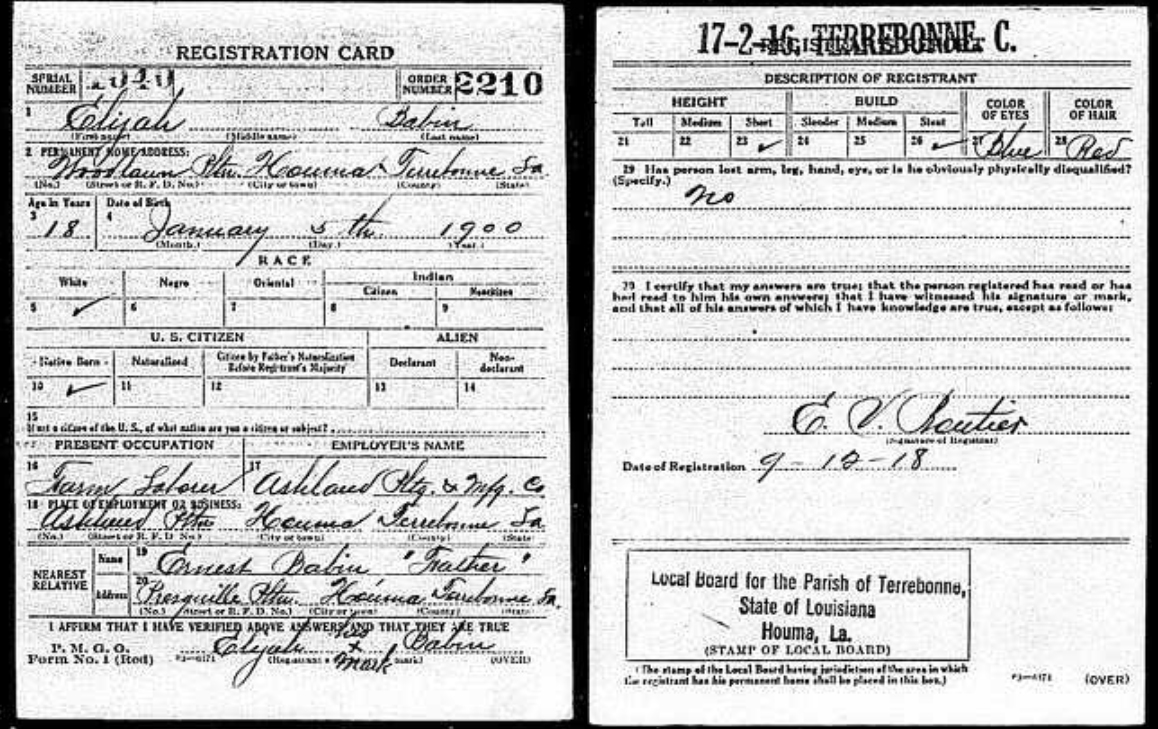 REGISTRATION CARD
SERIAL NUMBER ORDER NUMBER 2210
1 Elijah Babin
(First name) (Middle name) (Last name)
2 PERMANENT HOME ADDRESS:
Woodlawn Pltn. Houma Terrebonne La
(No.) (Street or R. F. D. No.) (City or town) (County) (State)
Age in Years Date of Birth
3 18 4 January 5 th. 1900
(Month.) (Day.) (Year.)
RACE
White Negro Oriental Indian
Citizen Noncitizen
5 ✓ 6 7 8 9
U. S. CITIZEN ALIEN
Native Born Naturalized Citizen by Father's Naturalization Before Registrant's Majority Declarant Non-declarant
10 ✓ 11 12 13 14
15
If not a citizen of the U. S., of what nation are you a citizen or subject?
PRESENT OCCUPATION EMPLOYER'S NAME
16 Farm Laborer 17 Ashland Pltg. & Mfg. Co
18 PLACE OF EMPLOYMENT OR BUSINESS:
Ashland Pltn Houma Terrebonne La
(No.) (Street or R. F. D. No.) (City or town) (County) (State)
NEAREST RELATIVE Name 19 Ernest Babin "Father"
Address 20 Presquville Pltn. Houma Terrebonne La.
(No.) (Street or R. F. D. No.) (City or town) (County) (State)
I AFFIRM THAT I HAVE VERIFIED ABOVE ANSWERS AND THAT THEY ARE TRUE
P. M. G. O.
Form No. 1 (Red) Elijah His x Mark Babin
(Registrant's mark) (OVER)
17-2-16 TERREBONNE C.
REGISTRAR'S REPORT
DESCRIPTION OF REGISTRANT
HEIGHT BUILD COLOR OF EYES COLOR OF HAIR
Tall Medium Short Slender Medium Stout
21 22 23 ✓ 24 25 26 ✓ 27 Blue 28 Red
29 Has person lost arm, leg, hand, eye, or is he obviously physically disqualified?
(Specify.)
no
30 I certify that my answers are true; that the person registered has read or has
had read to him his own answers; that I have witnessed his signature or mark,
and that all of his answers of which I have knowledge are true, except as follows:
E. V.
(Signature of Registrar)
Date of Registration 9-12-18
Local Board for the Parish of Terrebonne,
State of Louisiana
Houma, La.
(STAMP OF LOCAL BOARD)
(The stamp of the Local Board having jurisdiction of the area in which
the registrant has his permanent home shall be placed in this box.)
03—6171 (OVER)